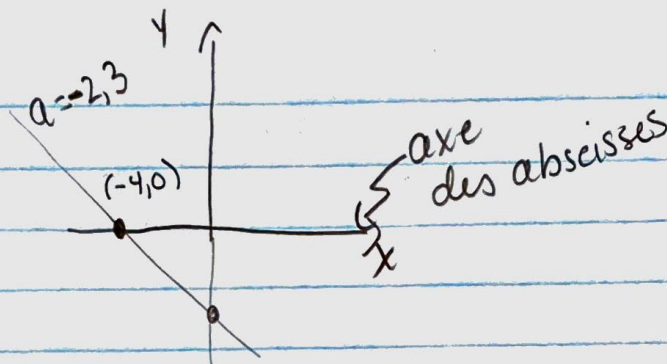 y
a=-2,3
(-4,0)
axe
des abscisses
x